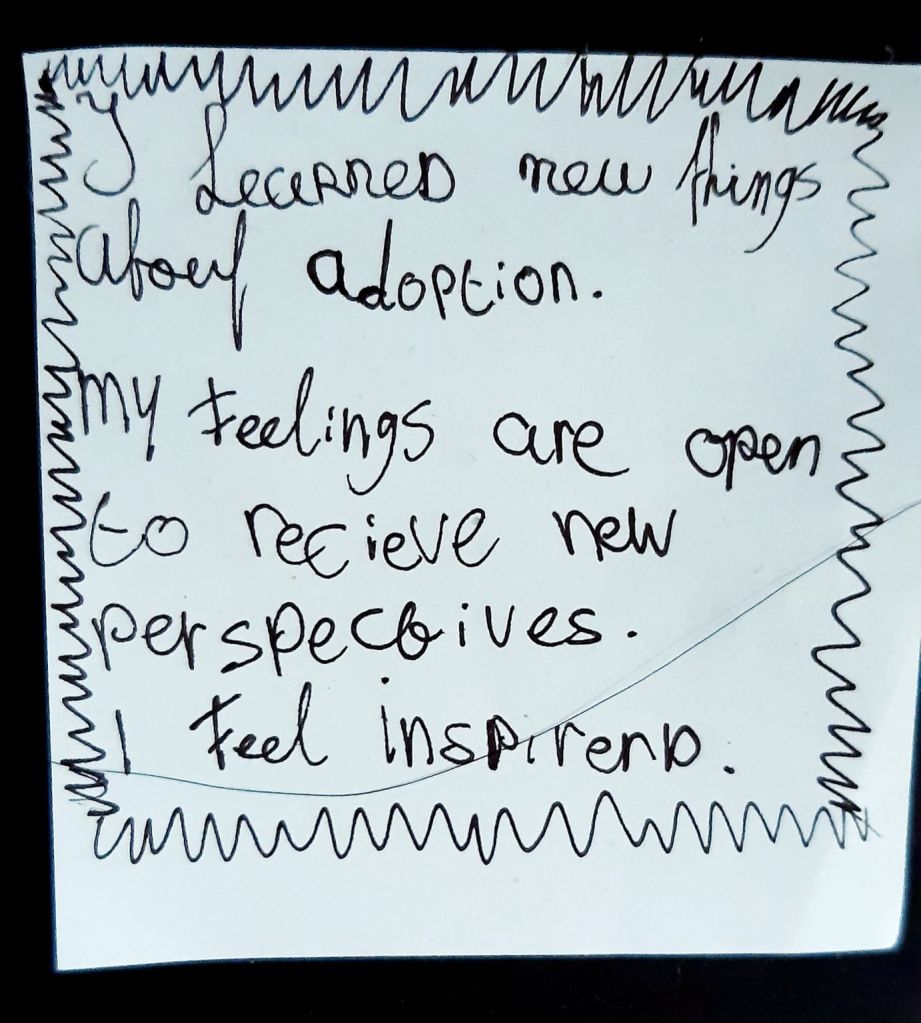 I Learned new things
about adoption.
My feelings are open
to recieve new
perspectives.
I feel inspirend.